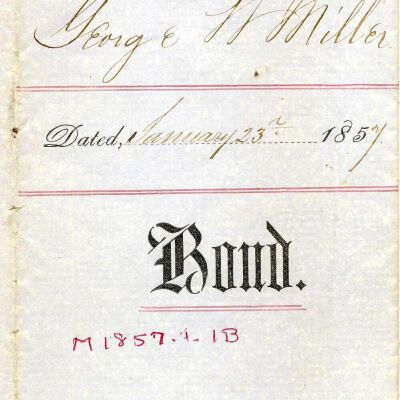 George W Miller
Dated, January 23d 1857
Bond.
M 1857.1.1B